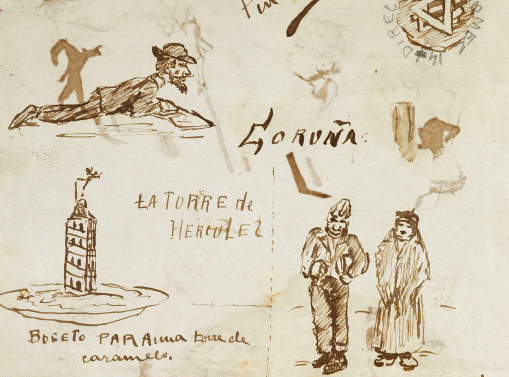 CORUÑA.
LA TORRE de
HERCULEZ
BOGETO PARA una torre de
caramelo.